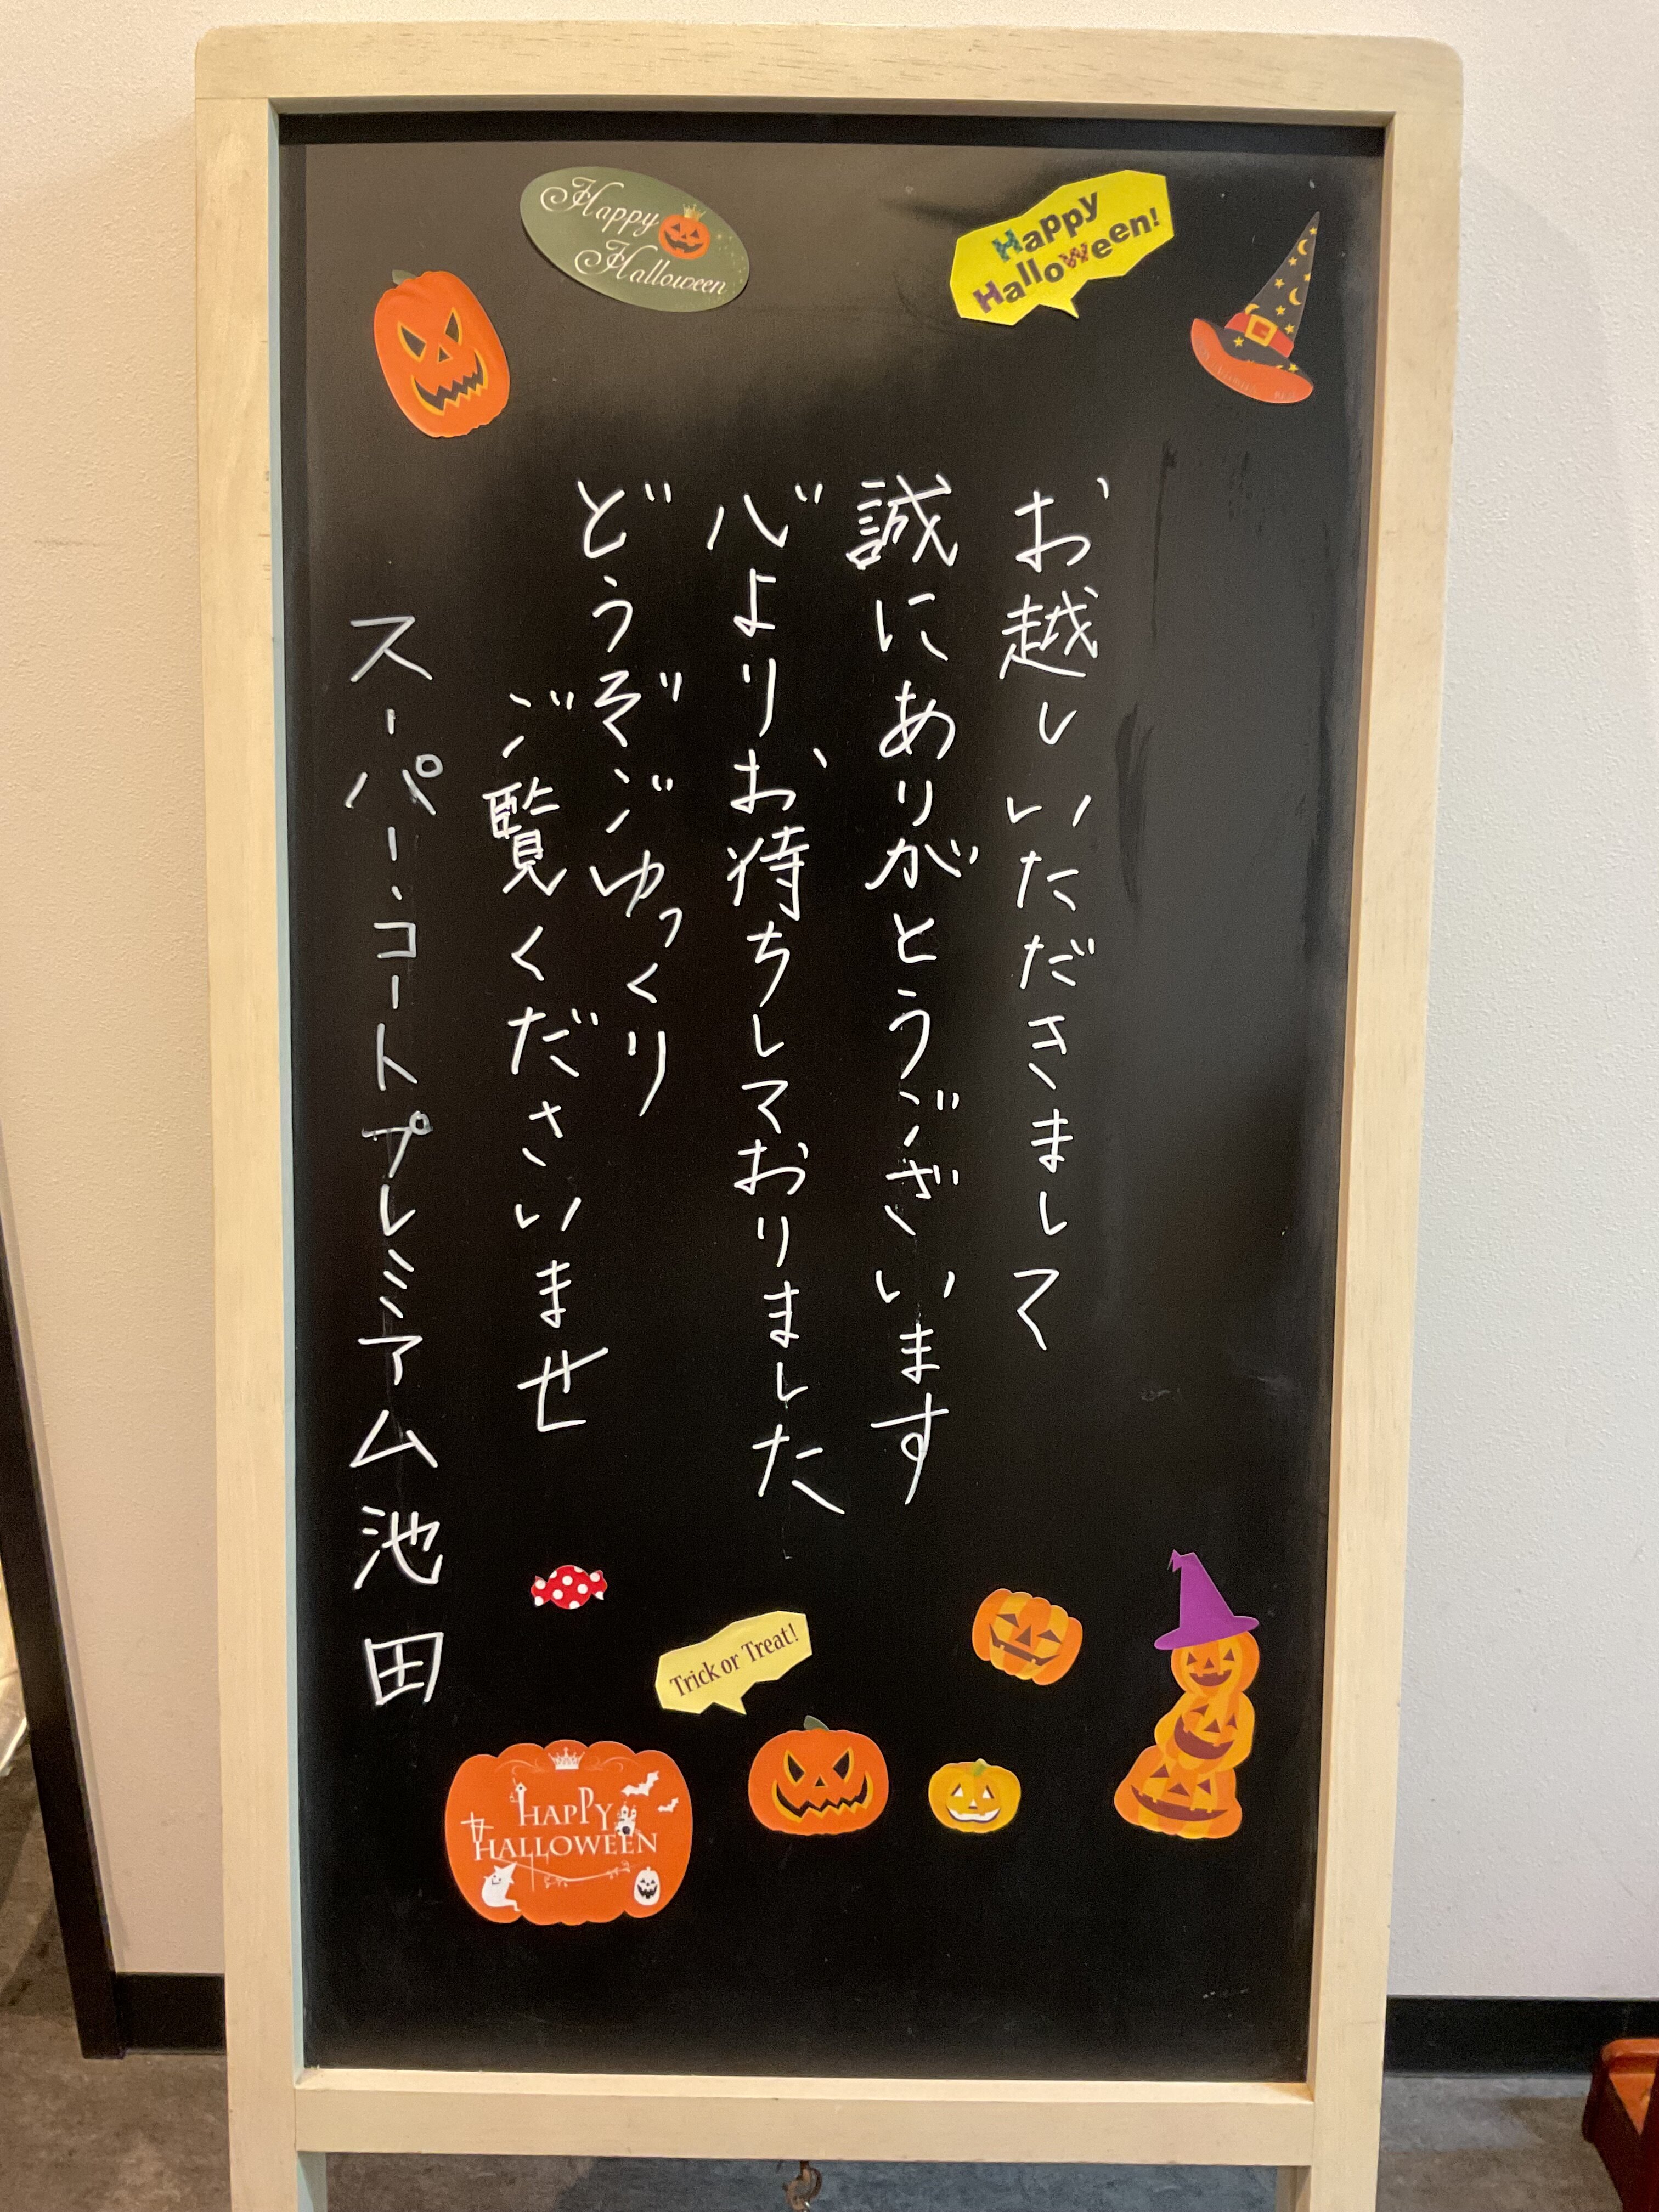 Happy
Halloween
Happy
Halloween!
お越しいただきまして
誠にありがとうございます
心よりお待ちしておりました
どうぞごゆっくり
ご覧くださいませ
スーパー・コートプレミアム池田
Trick or Treat!
HAPPY
HALLOWEEN